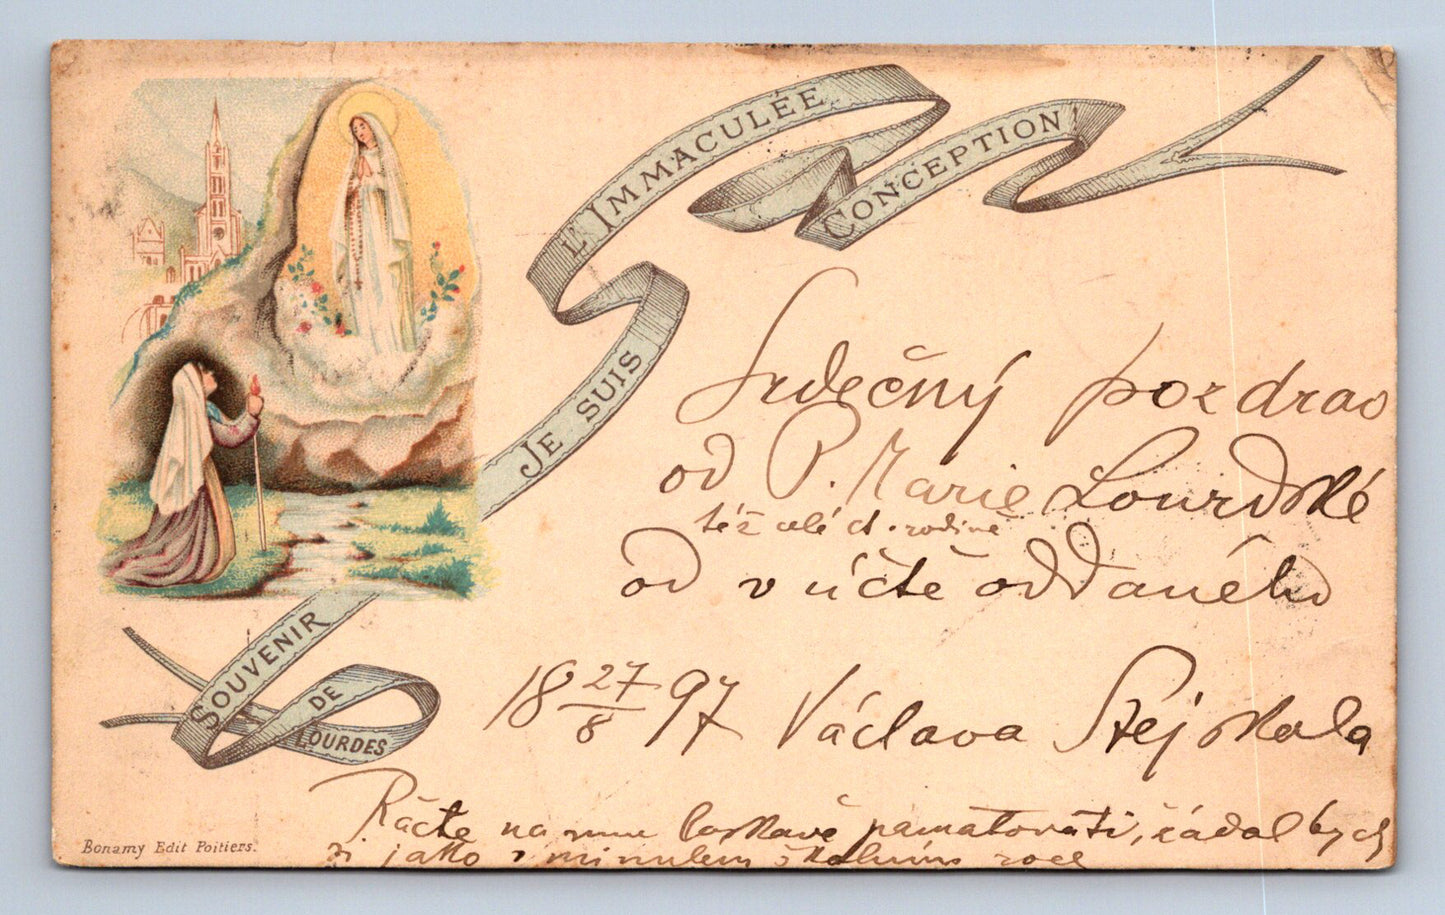 L'IMMACULÉE
CONCEPTION!
JE SUIS
SOUVENIR
DE
LOURDES
Srdečný pozdrav
od P. Marie Lourdské
též celé ct. rodině
od v úctě oddaného
18 27/8 97 Václava Stejskala
Račte na mne laskavě pamatovati, žádal bych
si jako v minulém školním roce
Bonamy Edit Poitiers.